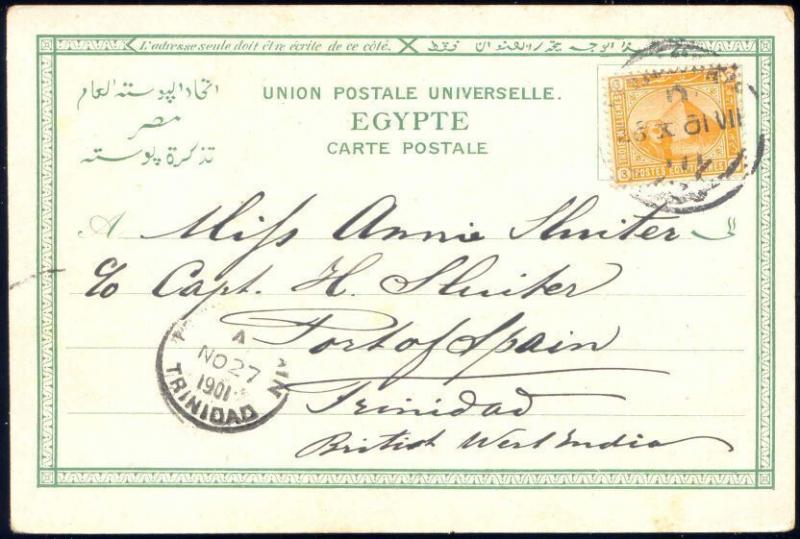 L'adresse seule doit être écrite de ce côté.
اتحاد البوسته العام
مصر
تذكرة بوسته
UNION POSTALE UNIVERSELLE.
EGYPTE
CARTE POSTALE
3 3
POSTES EGYPTIENNES
VII
A Miss Annie Sluiter الى
c/o Capt. H. Sluiter
Port of Spain
Trinidad
British West India
A
NO 27
1901
TRINIDAD